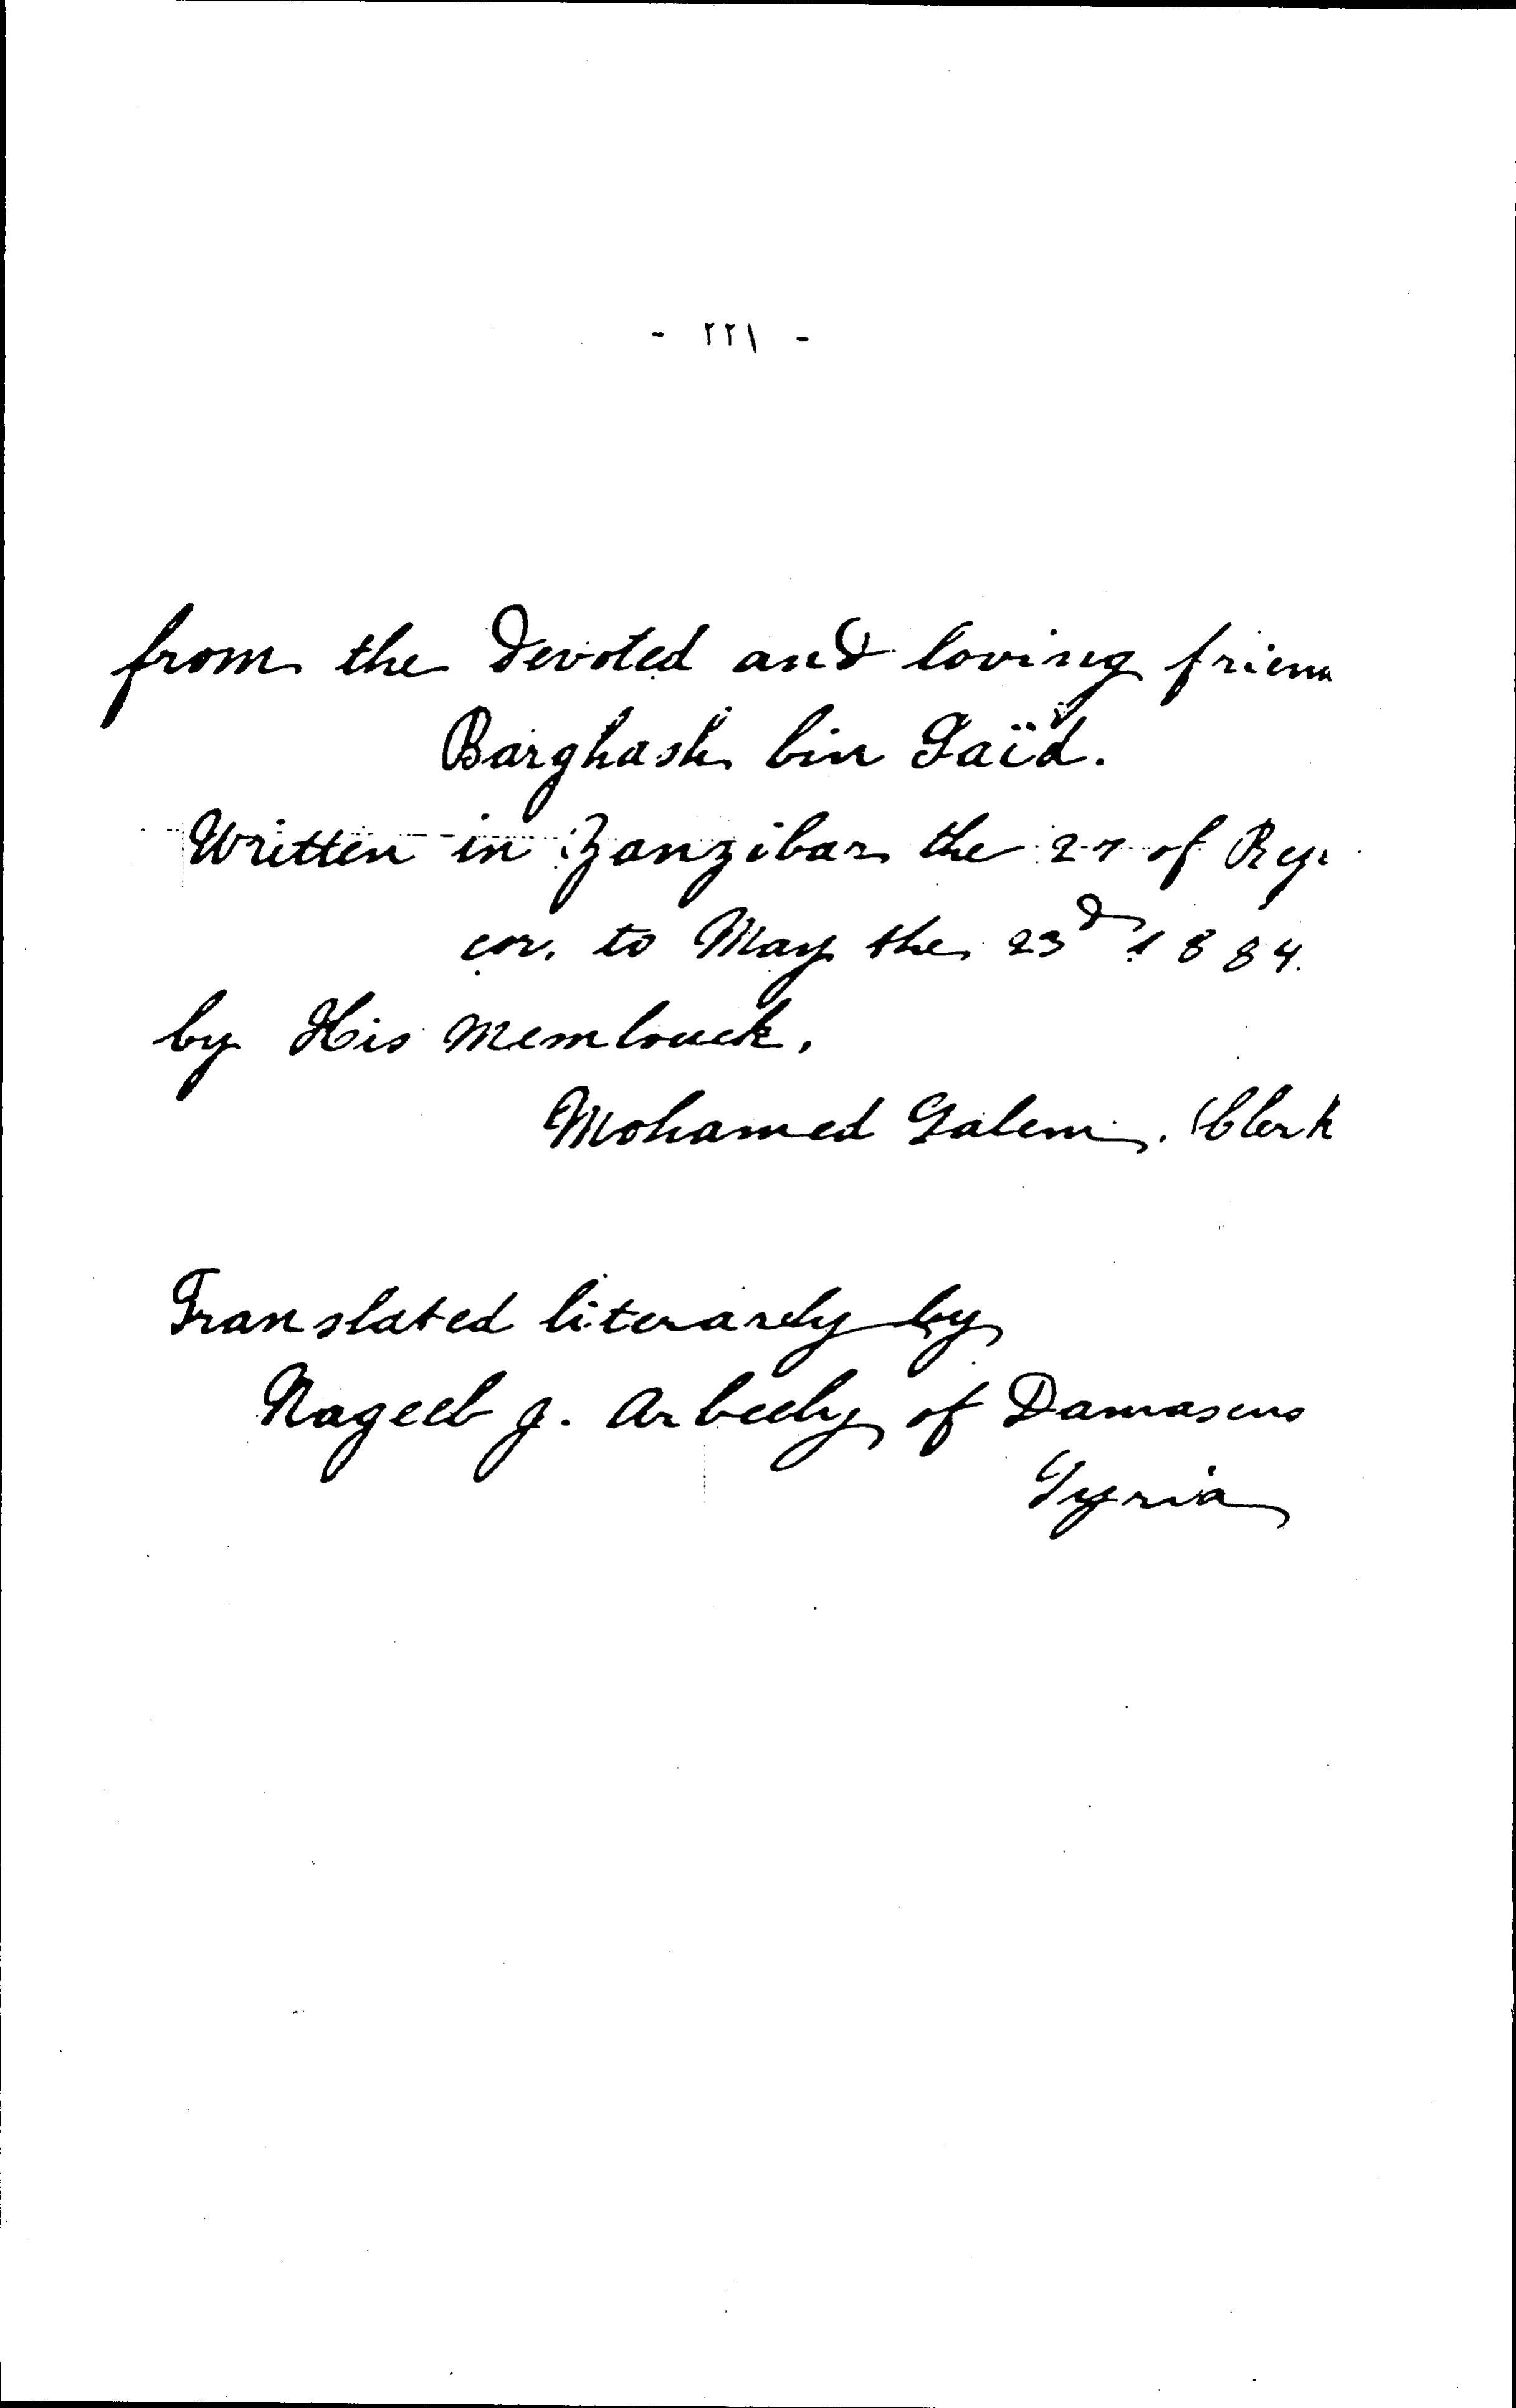 - ٢٢١ -
from the devoted and loving frien
Barghash bin Saïd.
Written in Zanzibar the 27 of
cor. to May the 23d 1884.
by His Memlouck.
Mohamed Salem. Clerk
Translated literarely by
Nageeb J. Arbeely of Damascus
Syria